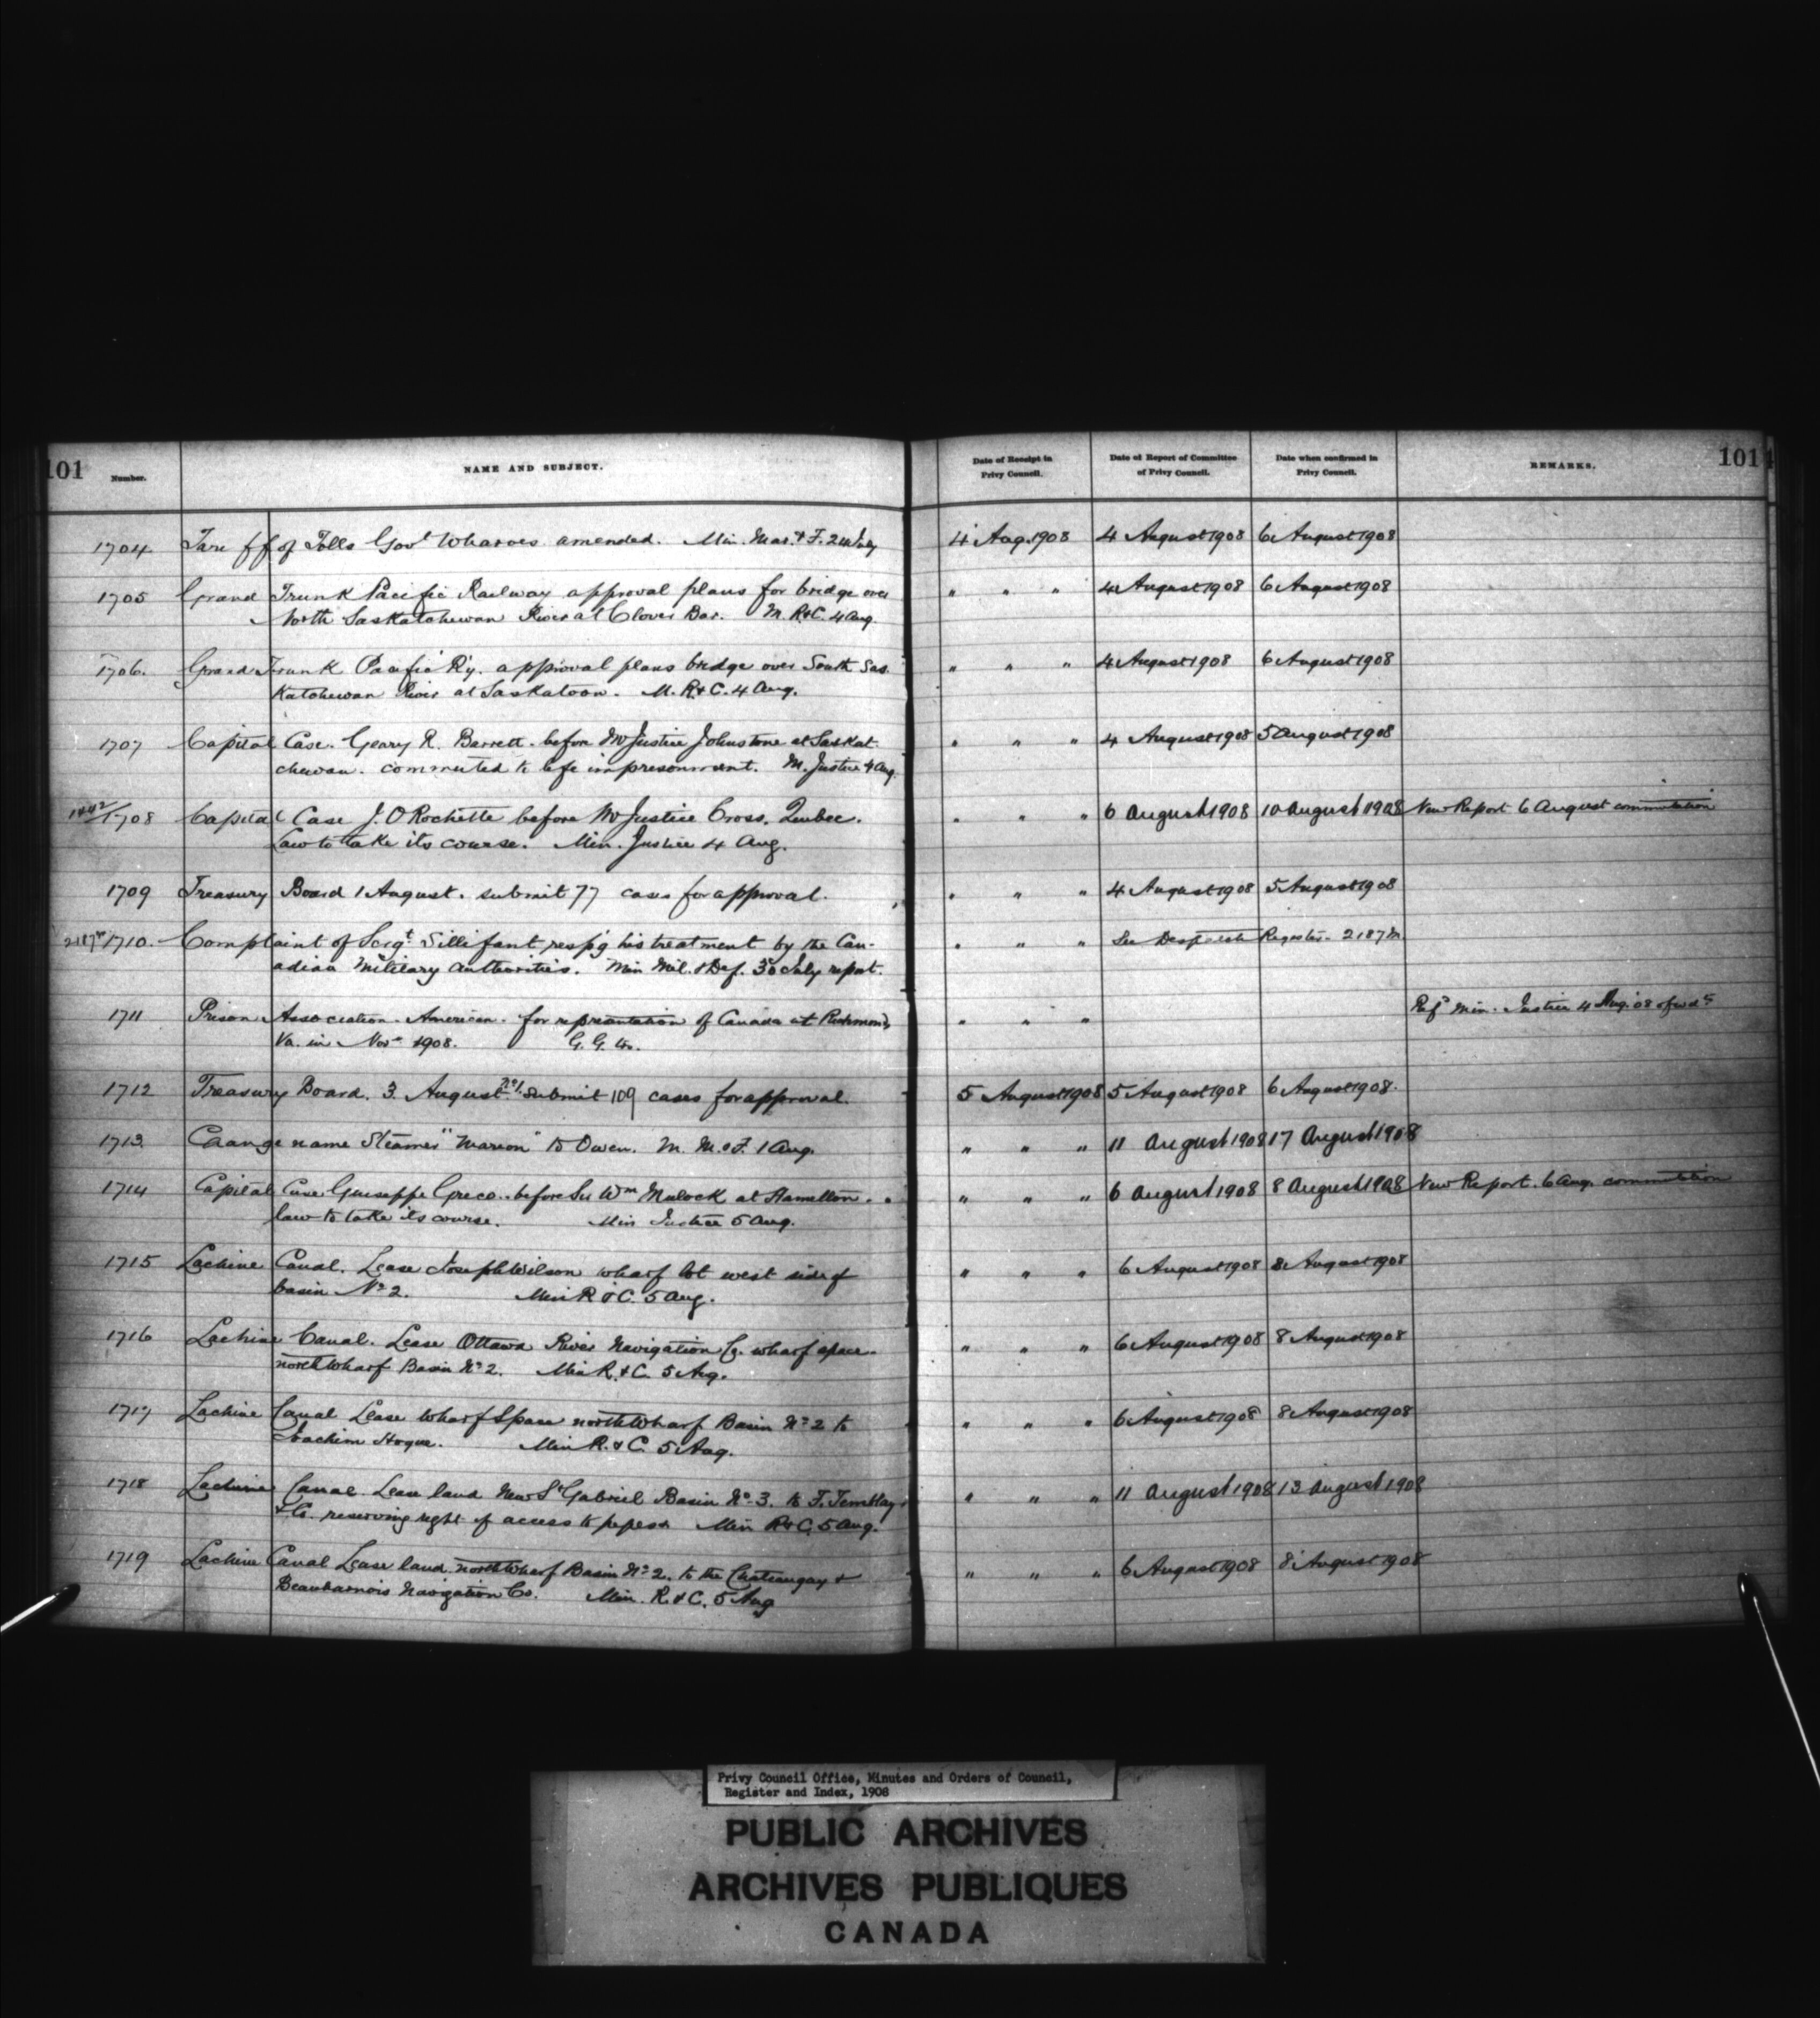 101 Number. NAME AND SUBJECT. Date of Receipt in Privy Council. Date of Report of Committee of Privy Council. Date when confirmed in Privy Council. REMARKS. 101
1704. Tariff of Tolls Govt Wharves amended. Min. Mar. & F. 24 July 4 Aug. 1908 4 August 1908 6 August 1908
1705 Grand Trunk Pacific Railway approval plans for bridge over " " " 4 August 1908 6 August 1908
North Saskatchewan River at Clover Bar. M. R & C. 4 Aug.
1706. Grand Trunk Pacific Ry. approval plans bridge over South Sas. " " " 4 August 1908 6 August 1908
Katchewan River at Saskatoon. M. R & C. 4 Aug.
1707 Capital Case. Geary R. Barrett. before Mr Justice Johnstone at Saskat- " " " 4 August 1908 5 August 1908
chewan. commuted to life imprisonment. M. Justice 4 Aug.
1708 Capital Case J. O Rochette before Mr Justice Cross. Quebec. " " " 6 August 1908 10 August 1908 New Report 6 August commutation
Law to take its course. Min. Justice 4 Aug.
1709 Treasury Board 1 August. submit 77 cases for approval. " " " 4 August 1908 5 August 1908
2187 M 1710. Complaint of Sergt. Sillifant respg his treatment by the Can- " " " See Despatch Register. 2187 M.
adian Military Authorities. Min Mil. & Def. 30 July report.
1711 Prison Association. American. for representation of Canada at Richmond, " " " Ref Min. Justice 4 Aug. 08
Va. in Nov 1908. G. G.
1712 Treasury Board. 3. August No 1. Submit 109 cases for approval. 5 August 1908 5 August 1908 6 August 1908.
1713 Change name Steamer "Marion" to Owen. M. M. & F. 1 Aug. " " " 11 August 1908 17 August 1908
1714 Capital Case Giuseppe Greco. before Sir Wm Mulock at Hamilton. " " " 6 August 1908 8 August 1908 New Report. 6 Aug. commutation
law to take its course. Min Justice 5 Aug.
1715 Lachine Canal. Lease Joseph Wilson wharf lot west side of " " " 6 August 1908 8 August 1908
basin No 2. Min R & C. 5 Aug.
1716 Lachine Canal. Lease Ottawa River Navigation Co. wharf space " " " 6 August 1908 8 August 1908
north wharf Basin No 2. Min R. & C. 5 Aug.
1717 Lachine Canal Lease Wharf Space north Wharf Basin No 2 to " " " 6 August 1908 8 August 1908
Joachim Hogue. Min R. & C. 5 Aug.
1718 Lachine Canal. Lease land New St Gabriel Basin No 3. to F. Tremblay " " " 11 August 1908 13 August 1908
& Co. reserving right of access to pipes &c Min R & C. 5 Aug.
1719 Lachine Canal Lease land north Wharf Basin No 2. to the Chateaugay & " " " 6 August 1908 8 August 1908
Beauharnois Navigation Co. Min. R. & C. 5 Aug
Privy Council Office, Minutes and Orders of Council,
Register and Index, 1908
PUBLIC ARCHIVES
ARCHIVES PUBLIQUES
CANADA